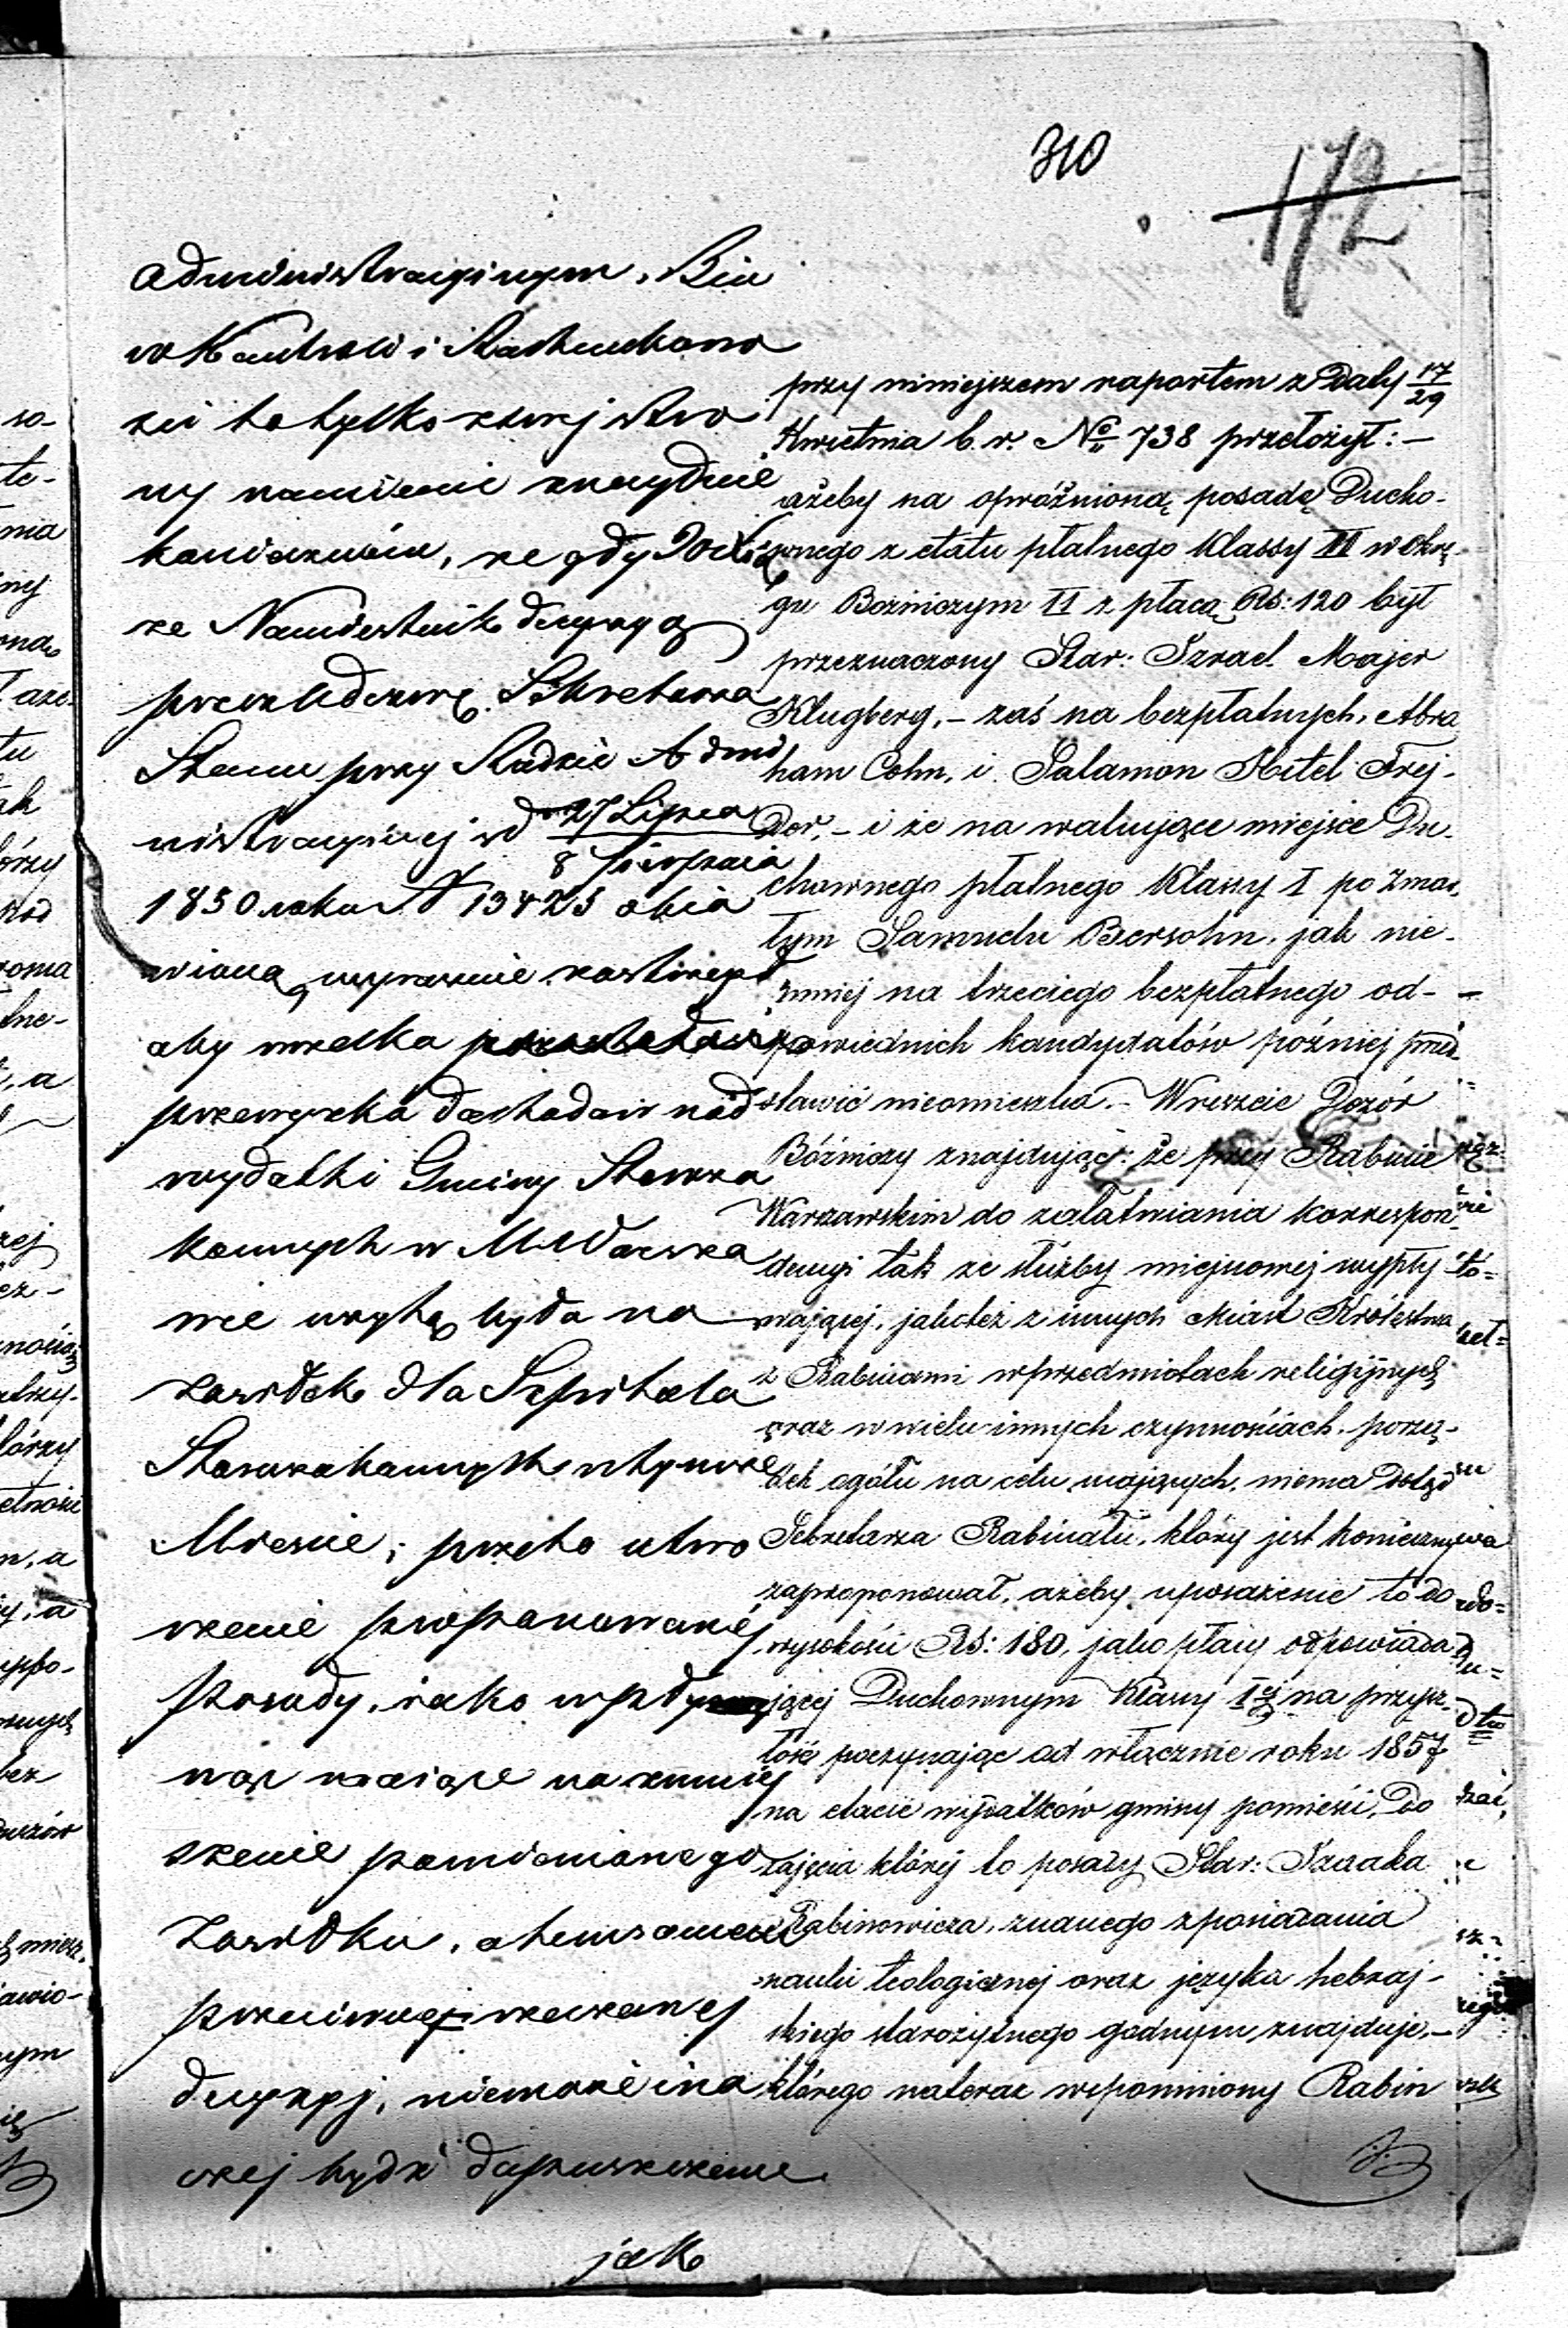 310
172
administracyjnym, Biu
ro Kontroli i Rachuckowo
ści to tylko z swej stro
ny namienić znajduje
koniecznem, że gdy JO Xią
że Namiestnik decyzyą
przez Odezwę Sekretarza
Stanu przy Radzie Admi
nistracyjnej od 27 Lipca
8 Sierpnia
1850 roku N 13423 obja
wioną, wyraźnie zastrzegł
aby wszelka
przewyżka dochodów nad
wydatki Gminy Staroza
konnych w M. Warsza
wie użytą była na
zasiłek dla Szpitala
Starozakonnych w tymże
Mieście; przeto utwo
rzenie proponowanej
Posady, jako
nąć mające na zmniej
szenie pomienionego
zasiłku, a tem samem
przeciwnej wskazanej
decyzyj, niemoże ina
czej bydź dopuszczone
jak
przy niniejszem raportem z daty 17/29
Kwietnia b. r. No 738 przełożył: –
ażeby na opróżnioną posadę Ducho-
wnego z etatu płatnego Klassy III w Okrę-
gu Bożniczym II z płacą Rs: 120 był
przeznaczony Star: Izrael Majer
Klugberg, – zaś na bezpłatnych, Abra
ham Cohn, i Salamon Hitel Frej-
dor, – i że na wakujące miejsce Du-
chownego płatnego Klassy I po zmar-
łym Samuelu Bersohn, jak nie-
mniej na trzeciego bezpłatnego od-
powiednich kandydatów później przed-
stawić nieomieszka. – Wreszcie Dozór
Bóźniczy znajdując: że przy Rabinie
Warszawskim do załatwiania korrespon-
dencyi tak ze służby miejscowej wypły-
wającej, jakoteż z innych Miast Królestwa
z Rabinami w przedmiotach religijnych
oraz w wielu innych czynnościach, porzą-
dek ogółu na celu mających, niema dotąd
Sekretarza Rabinatu, który jest konieczny
zaproponował, ażeby uposażenie to do
wysokości Rs: 180, jako płacy odpowiada-
jącej Duchownym Klassy I na przysz-
łość poczynając od włącznie roku 1857
na etacie wydatków gminy pomieścić, do
zajęcia której to posady Star: Izaaka
Rabinowicza, znanego z posiadania
nauki teologicznej oraz języka hebraj-
skiego starożytnego godnym znajduje, –
którego nateraz wspomniony Rabin